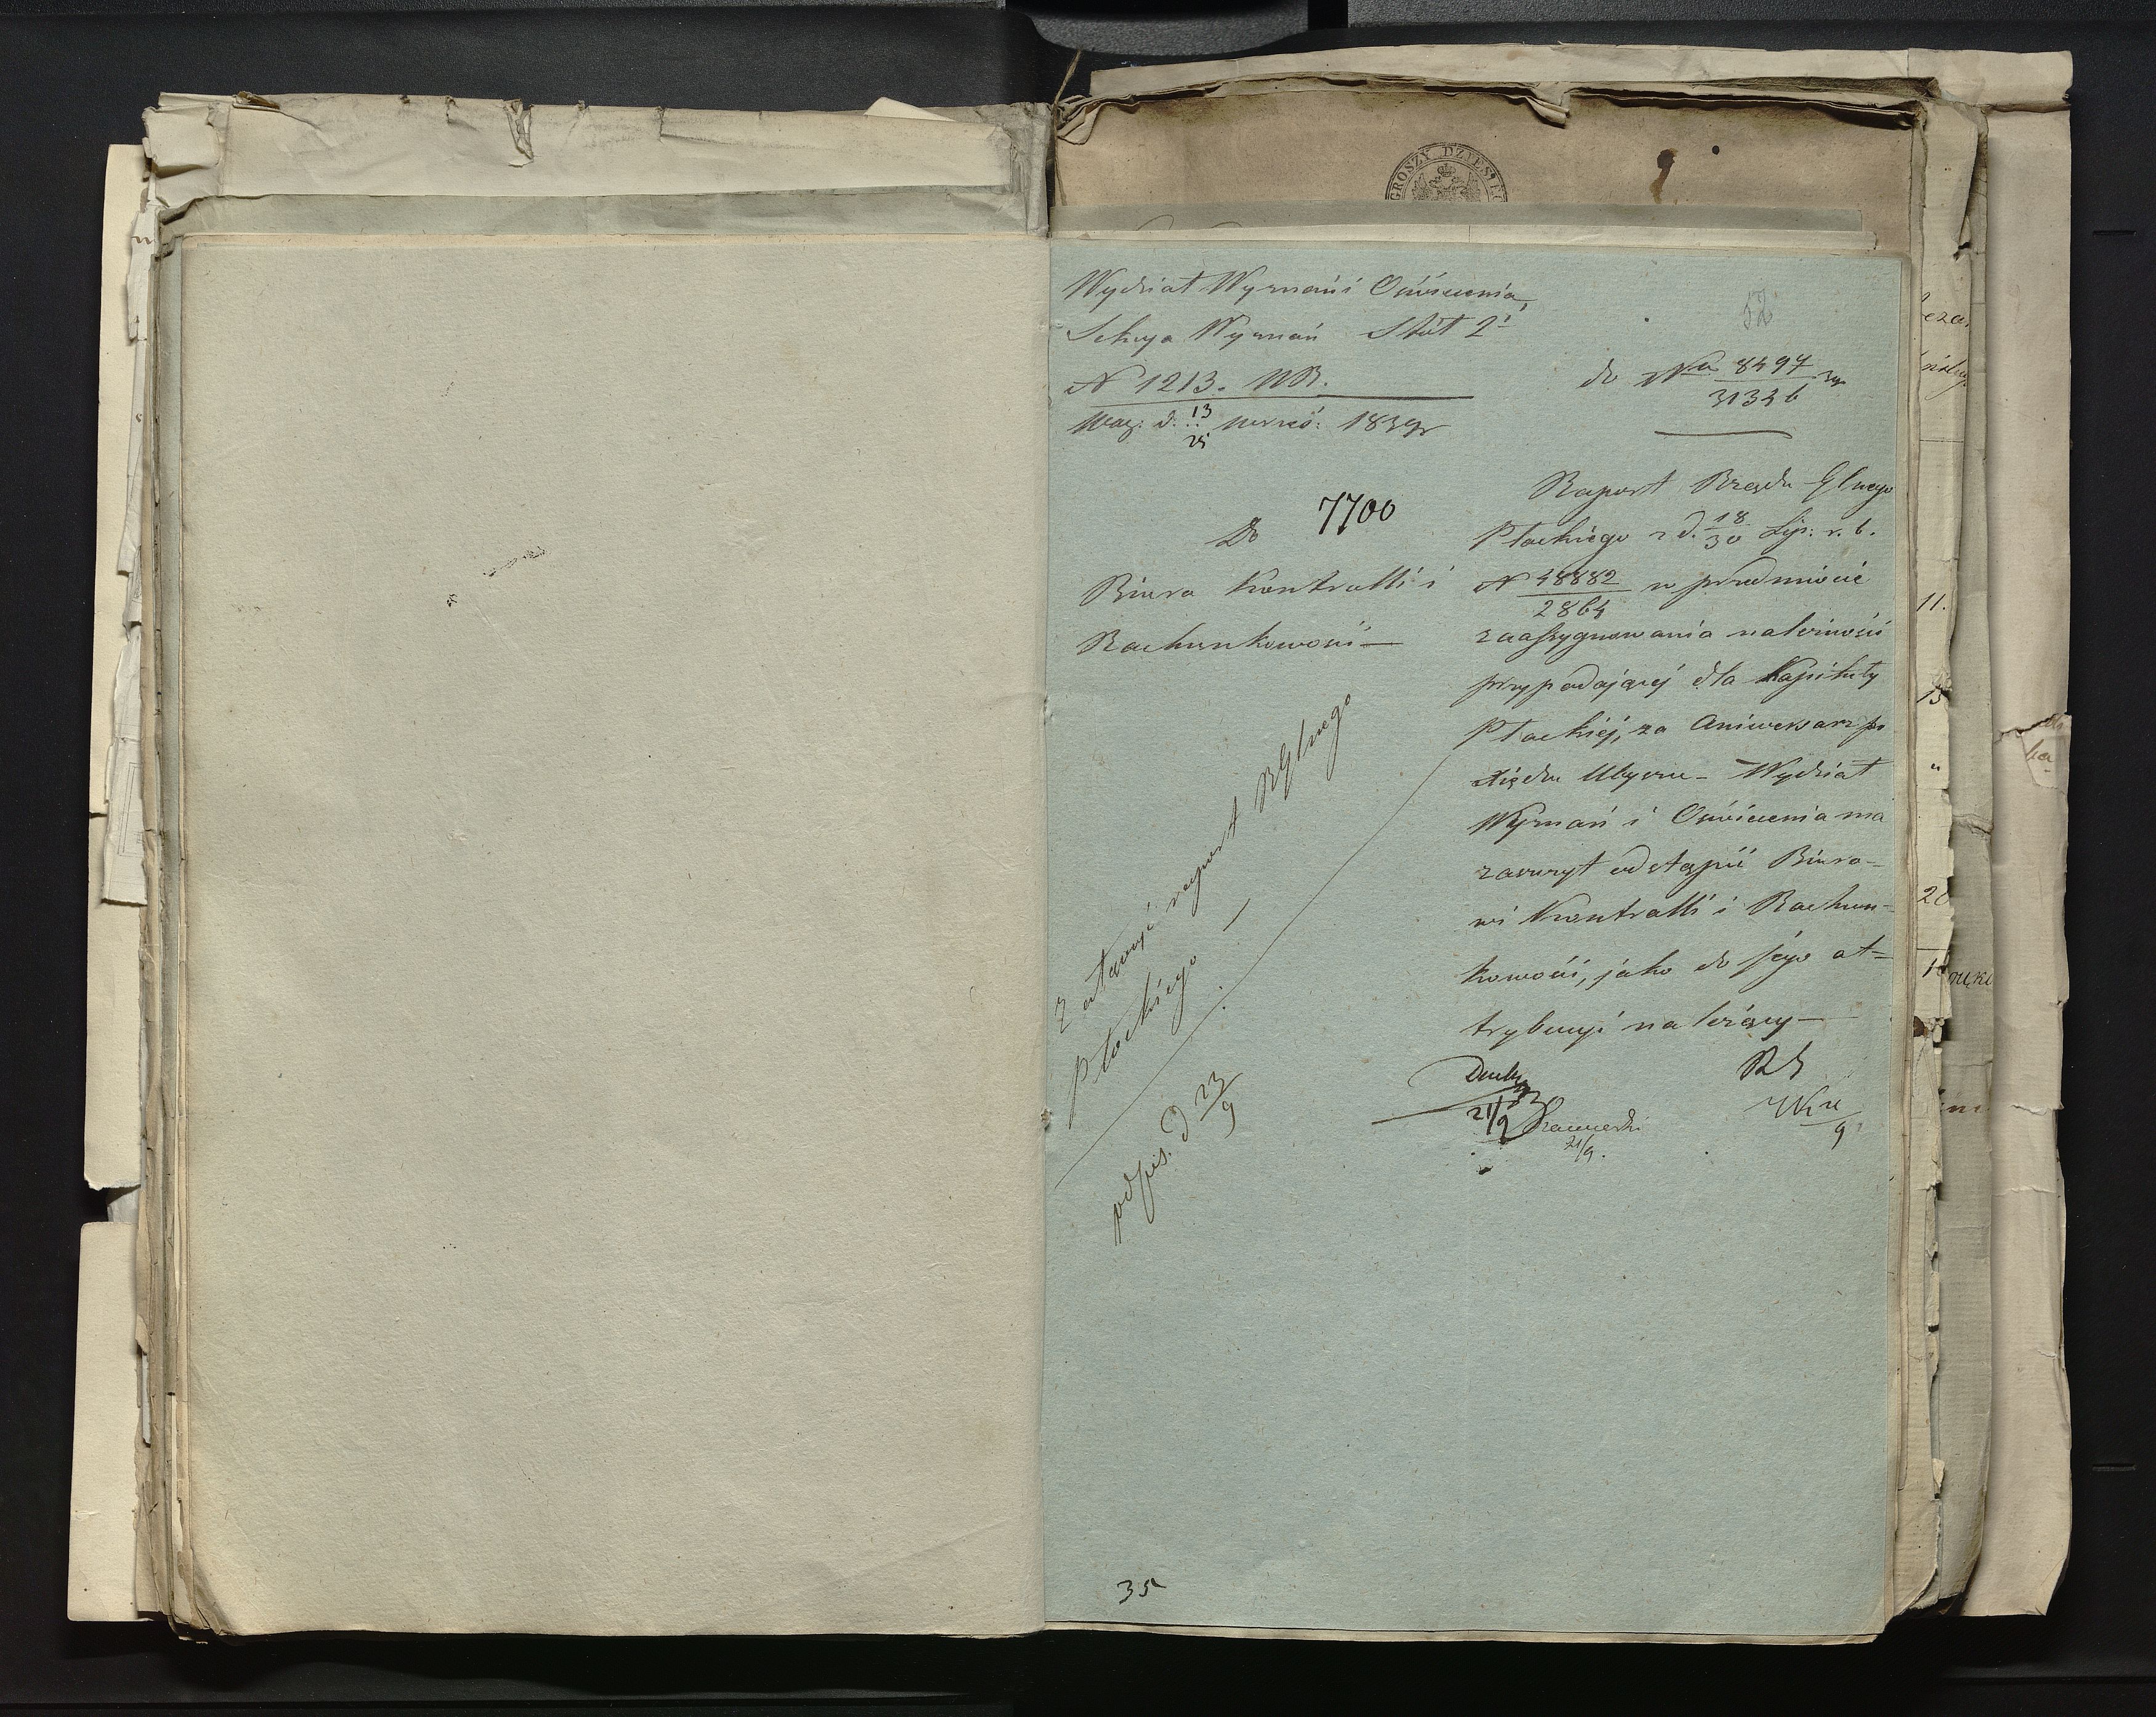 GROSZY DZIESIĘĆ
Wydział Wyznań i Oświecenia,
Sekcya Wyznań Stół 2i
N 1213. NB.
Wag: d. 13/25 wrześ: 1839r
52
do Nru 8497/31346
7700
Do
Biura Kontrolli i
Rachunkowości —
Raport Rządu Glnego
Płockiego z d. 18/30 Lip: r. b.
N 48882/2864 w przedmiocie
zaassygnowania należności
przypadającéj dla Kapituły
Płockiéj, za Aniwersarz po
Xiędzu Ubyszu – Wydział
Wyznań i Oświecenia ma
zaszczyt odstąpić Biuro-
wi Kontrolli i Rachun-
kowości, jako do jego at=
trybucyi należący —
Załączyć raport RGlnego
Płockiego —
podpis. d 23/9
21/9
21/9.
35